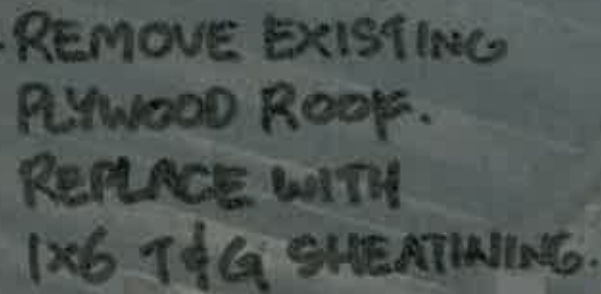 - REMOVE EXISTING
PLYWOOD ROOF.
REPLACE WITH
1x6 T&G SHEATHING.